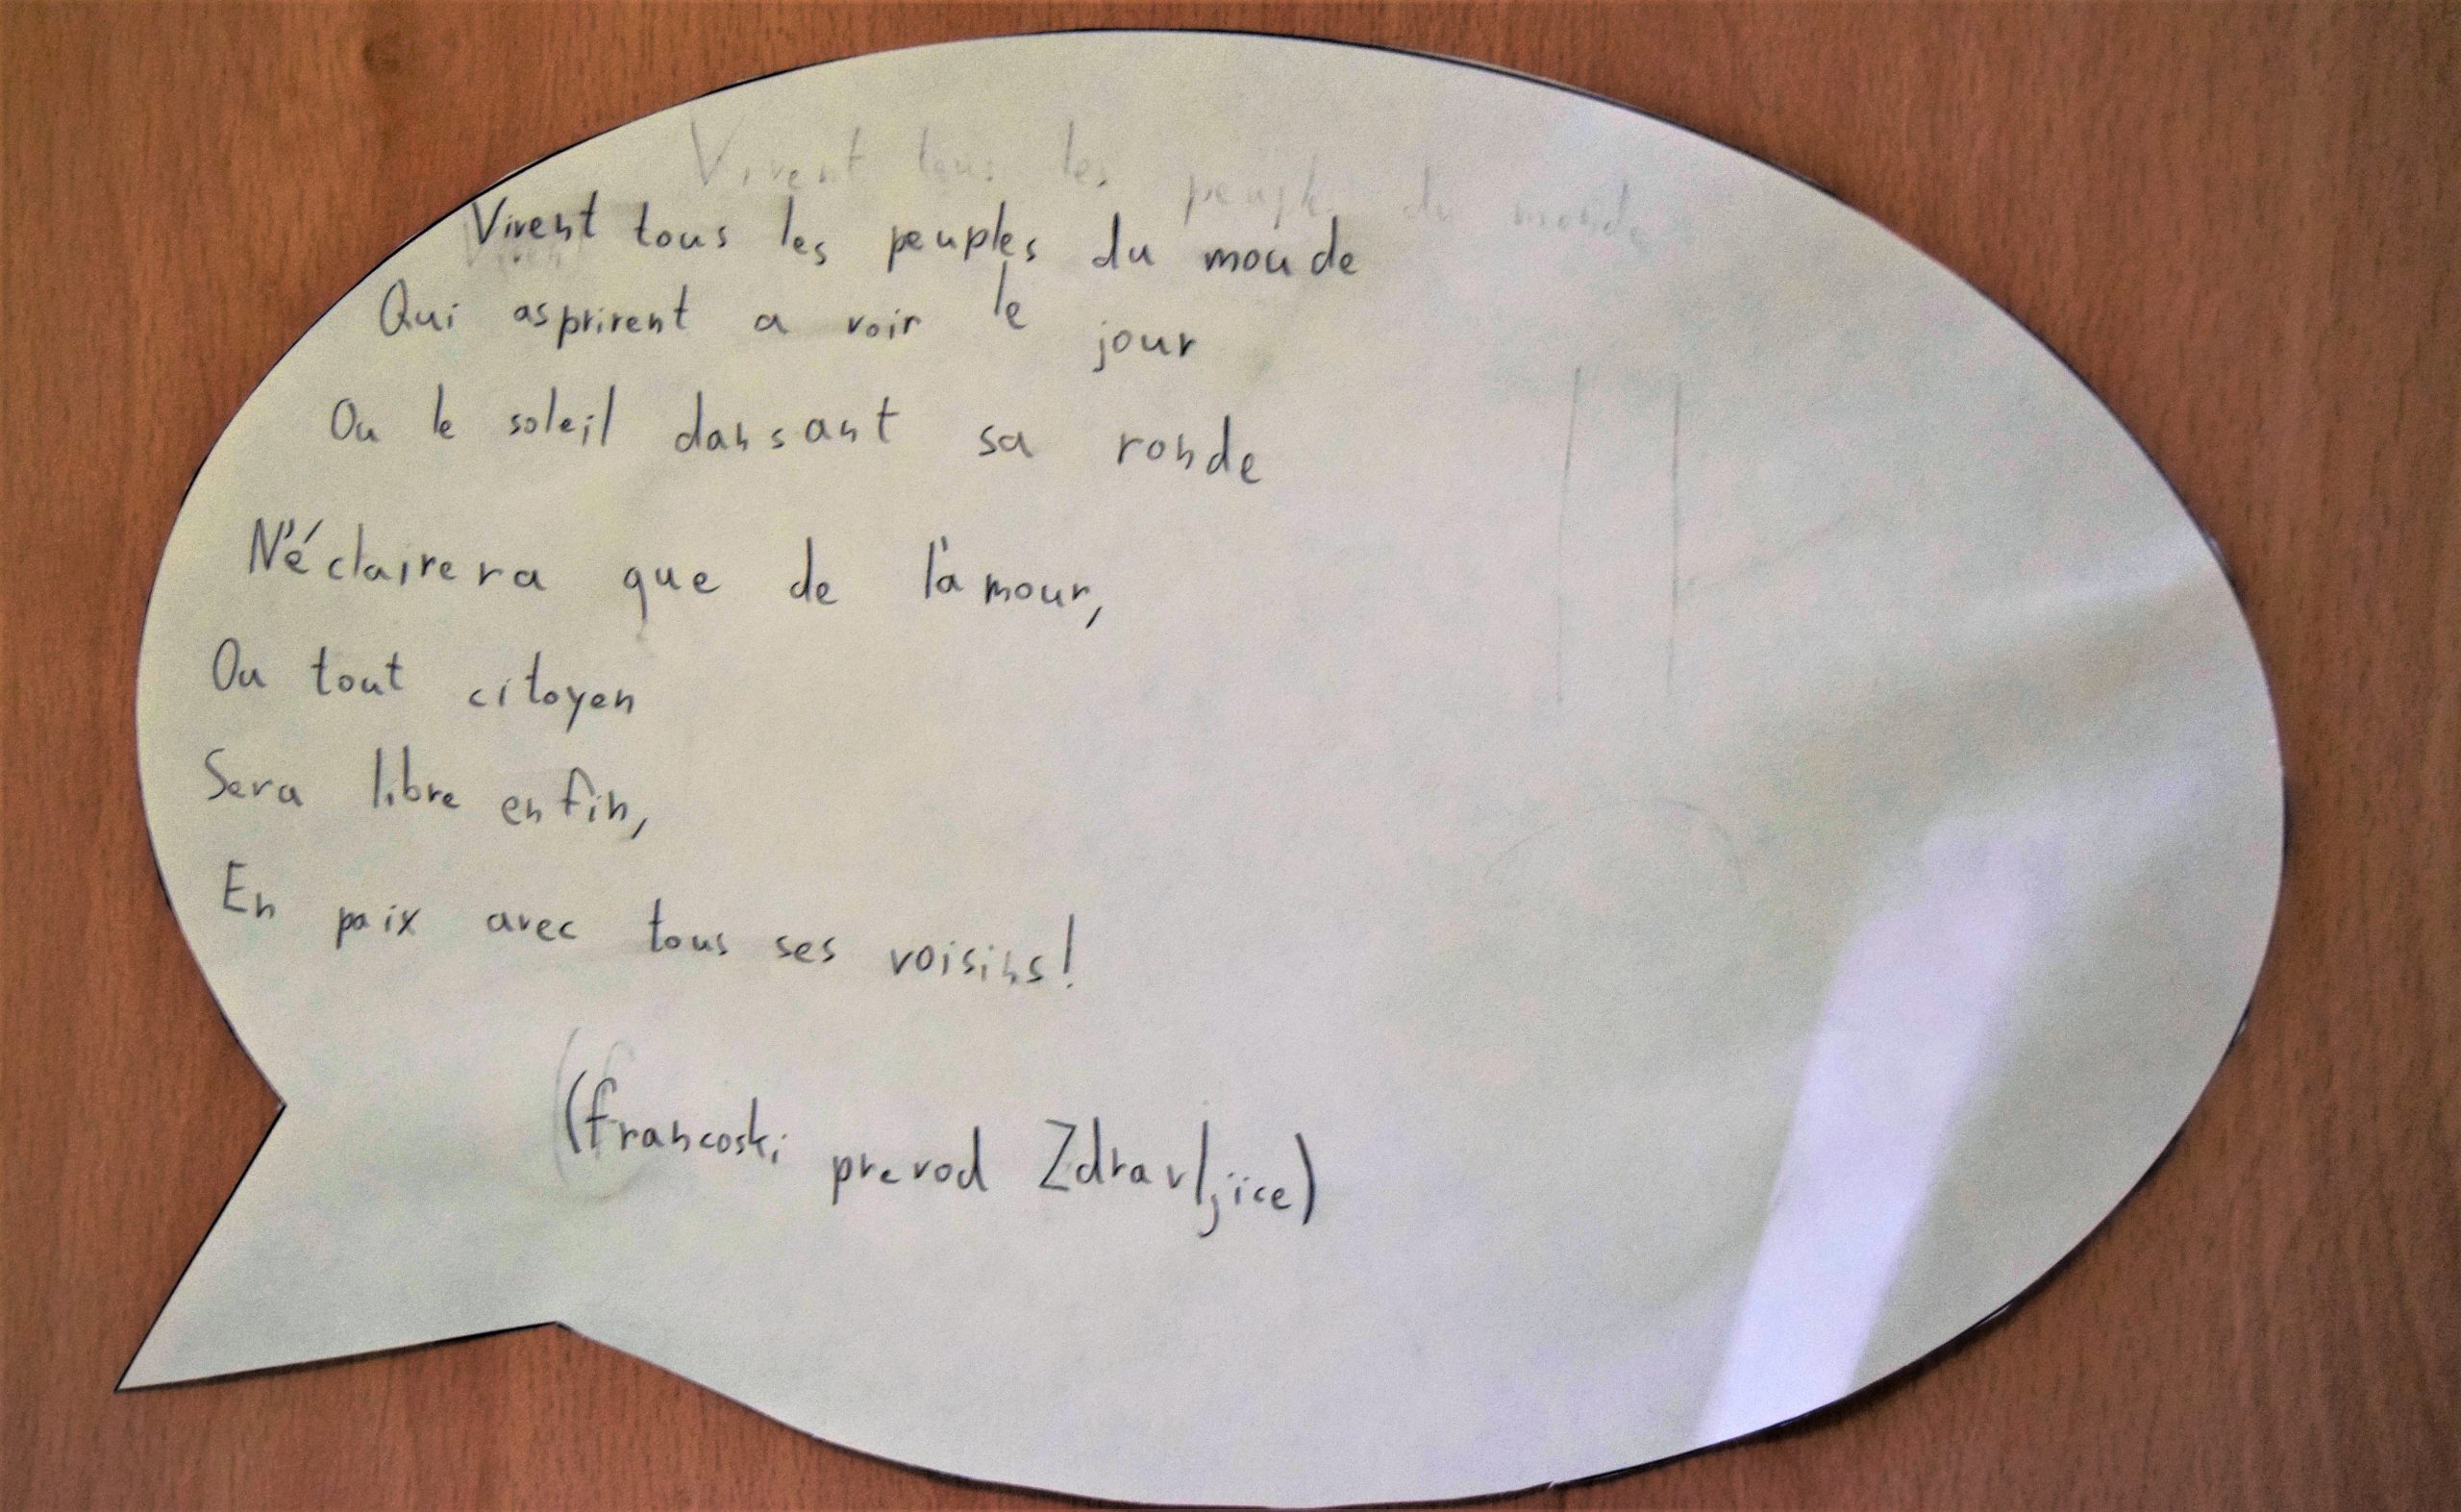 Vivent tous les peuples du monde
Vivent tous les peuples du monde
Qui asprirent a voir le jour
Ou le soleil dansant sa ronde
N'éclairera que de l'amour,
Ou tout citoyen
Sera libre enfin,
En paix avec tous ses voisins!
(francoski prevod Zdravljice)